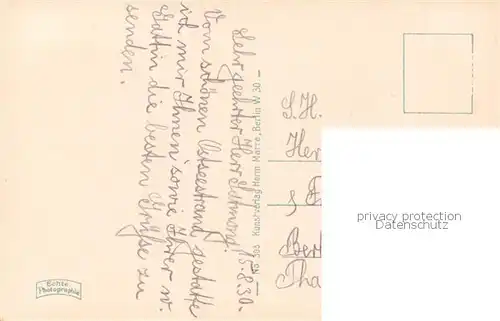 15.8.30.
Sehr geehrter Herr
Vom schönen Ostseestrand gestatte
ich mir Ihnen sowie Ihrer w.
Gattin die besten Grüße zu
senden.
No 303 Kunstverlag Herm. Marre, Berlin W 30
S. H.
Her
Ber
Tha
Echte
Photographie
privacy protection
Persönlichkeitsschutz